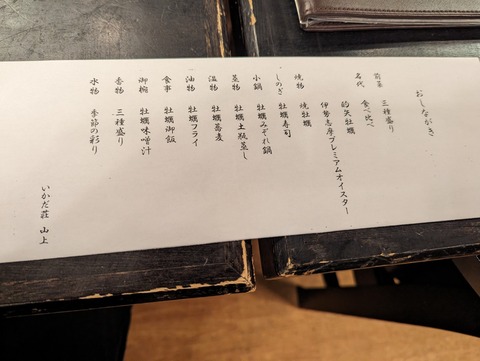 おしながき
前菜 三種盛り
名代 食べ比べ
的矢牡蠣
伊勢志摩プレミアムオイスター
焼物 焼牡蠣
しのぎ 牡蠣寿司
小鍋 牡蠣みぞれ鍋
蒸物 牡蠣土瓶蒸し
温物 牡蠣蕎麦
油物 牡蠣フライ
食事 牡蠣御飯
御椀 牡蠣味噌汁
香物 三種盛り
水物 季節の彩り
いかだ荘 山上